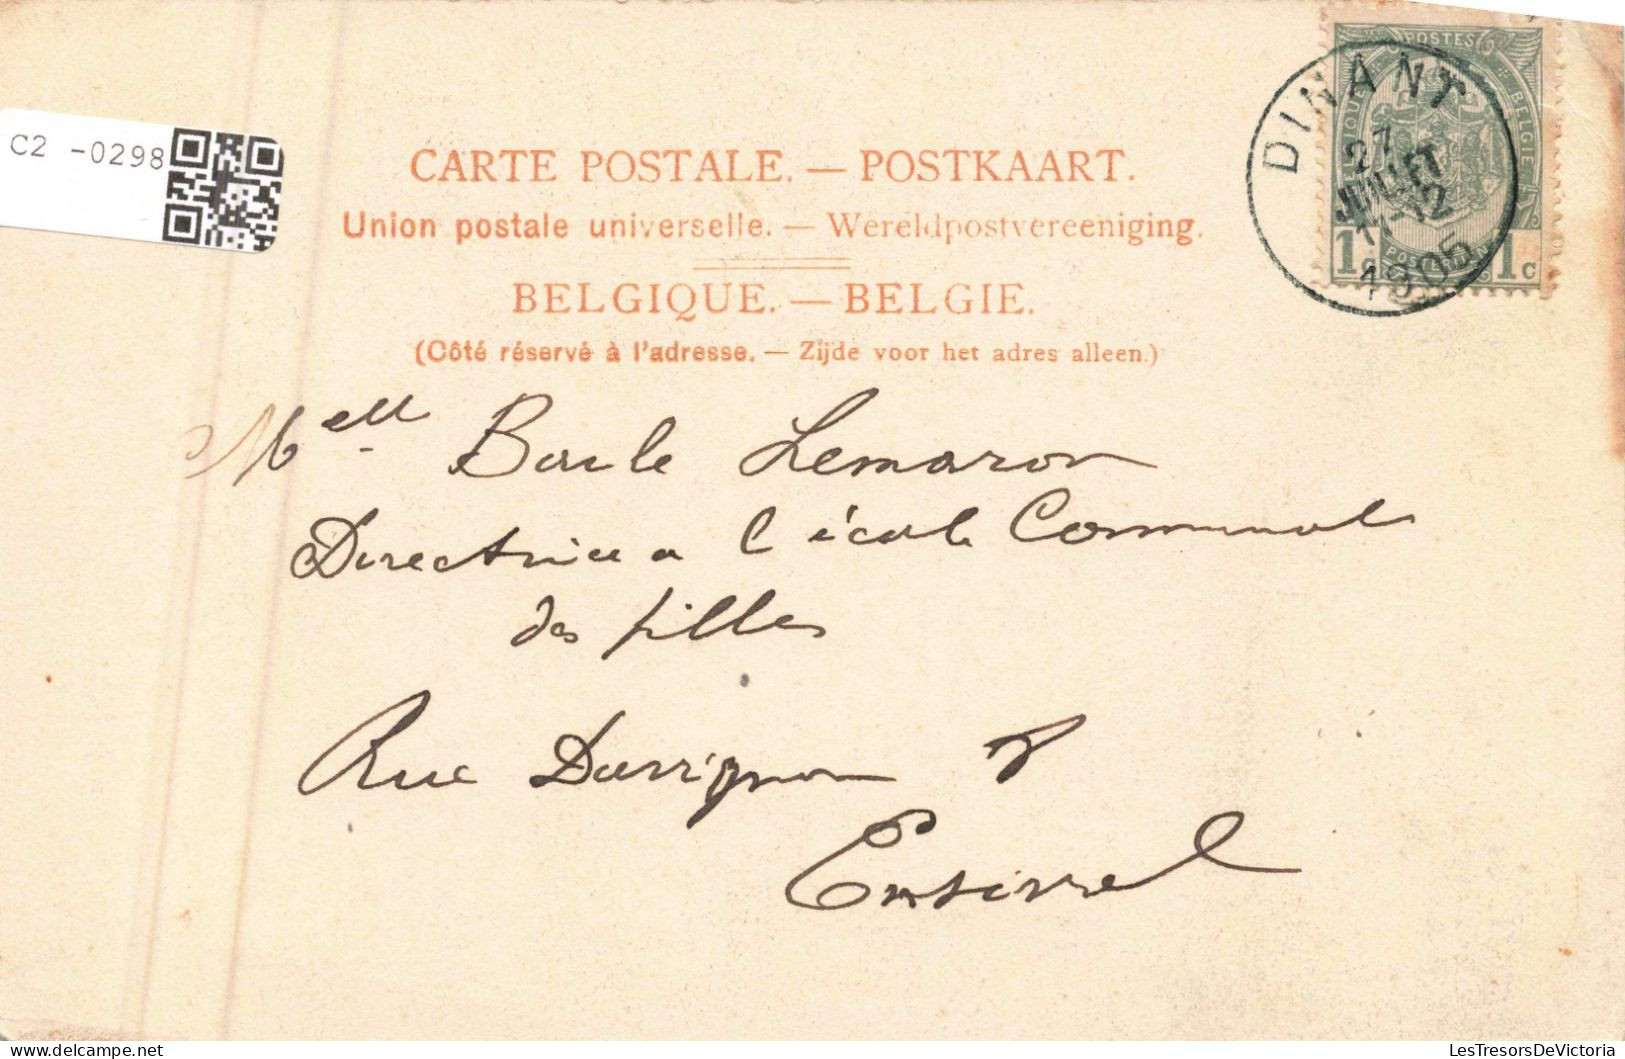 C2 -0298
POSTES
BELGIQUE
BELGIE
1c
1c
DINANT
27
JUILLET
11-12
1905
CARTE POSTALE. — POSTKAART.
Union postale universelle. — Wereldpostvereeniging.
BELGIQUE. — BELGIE.
(Côté réservé à l'adresse. — Zijde voor het adres alleen.)
Melle Lemaron
Directrice a l'école Communale
des filles
Rue
Ensival
LesTresorsDeVictoria